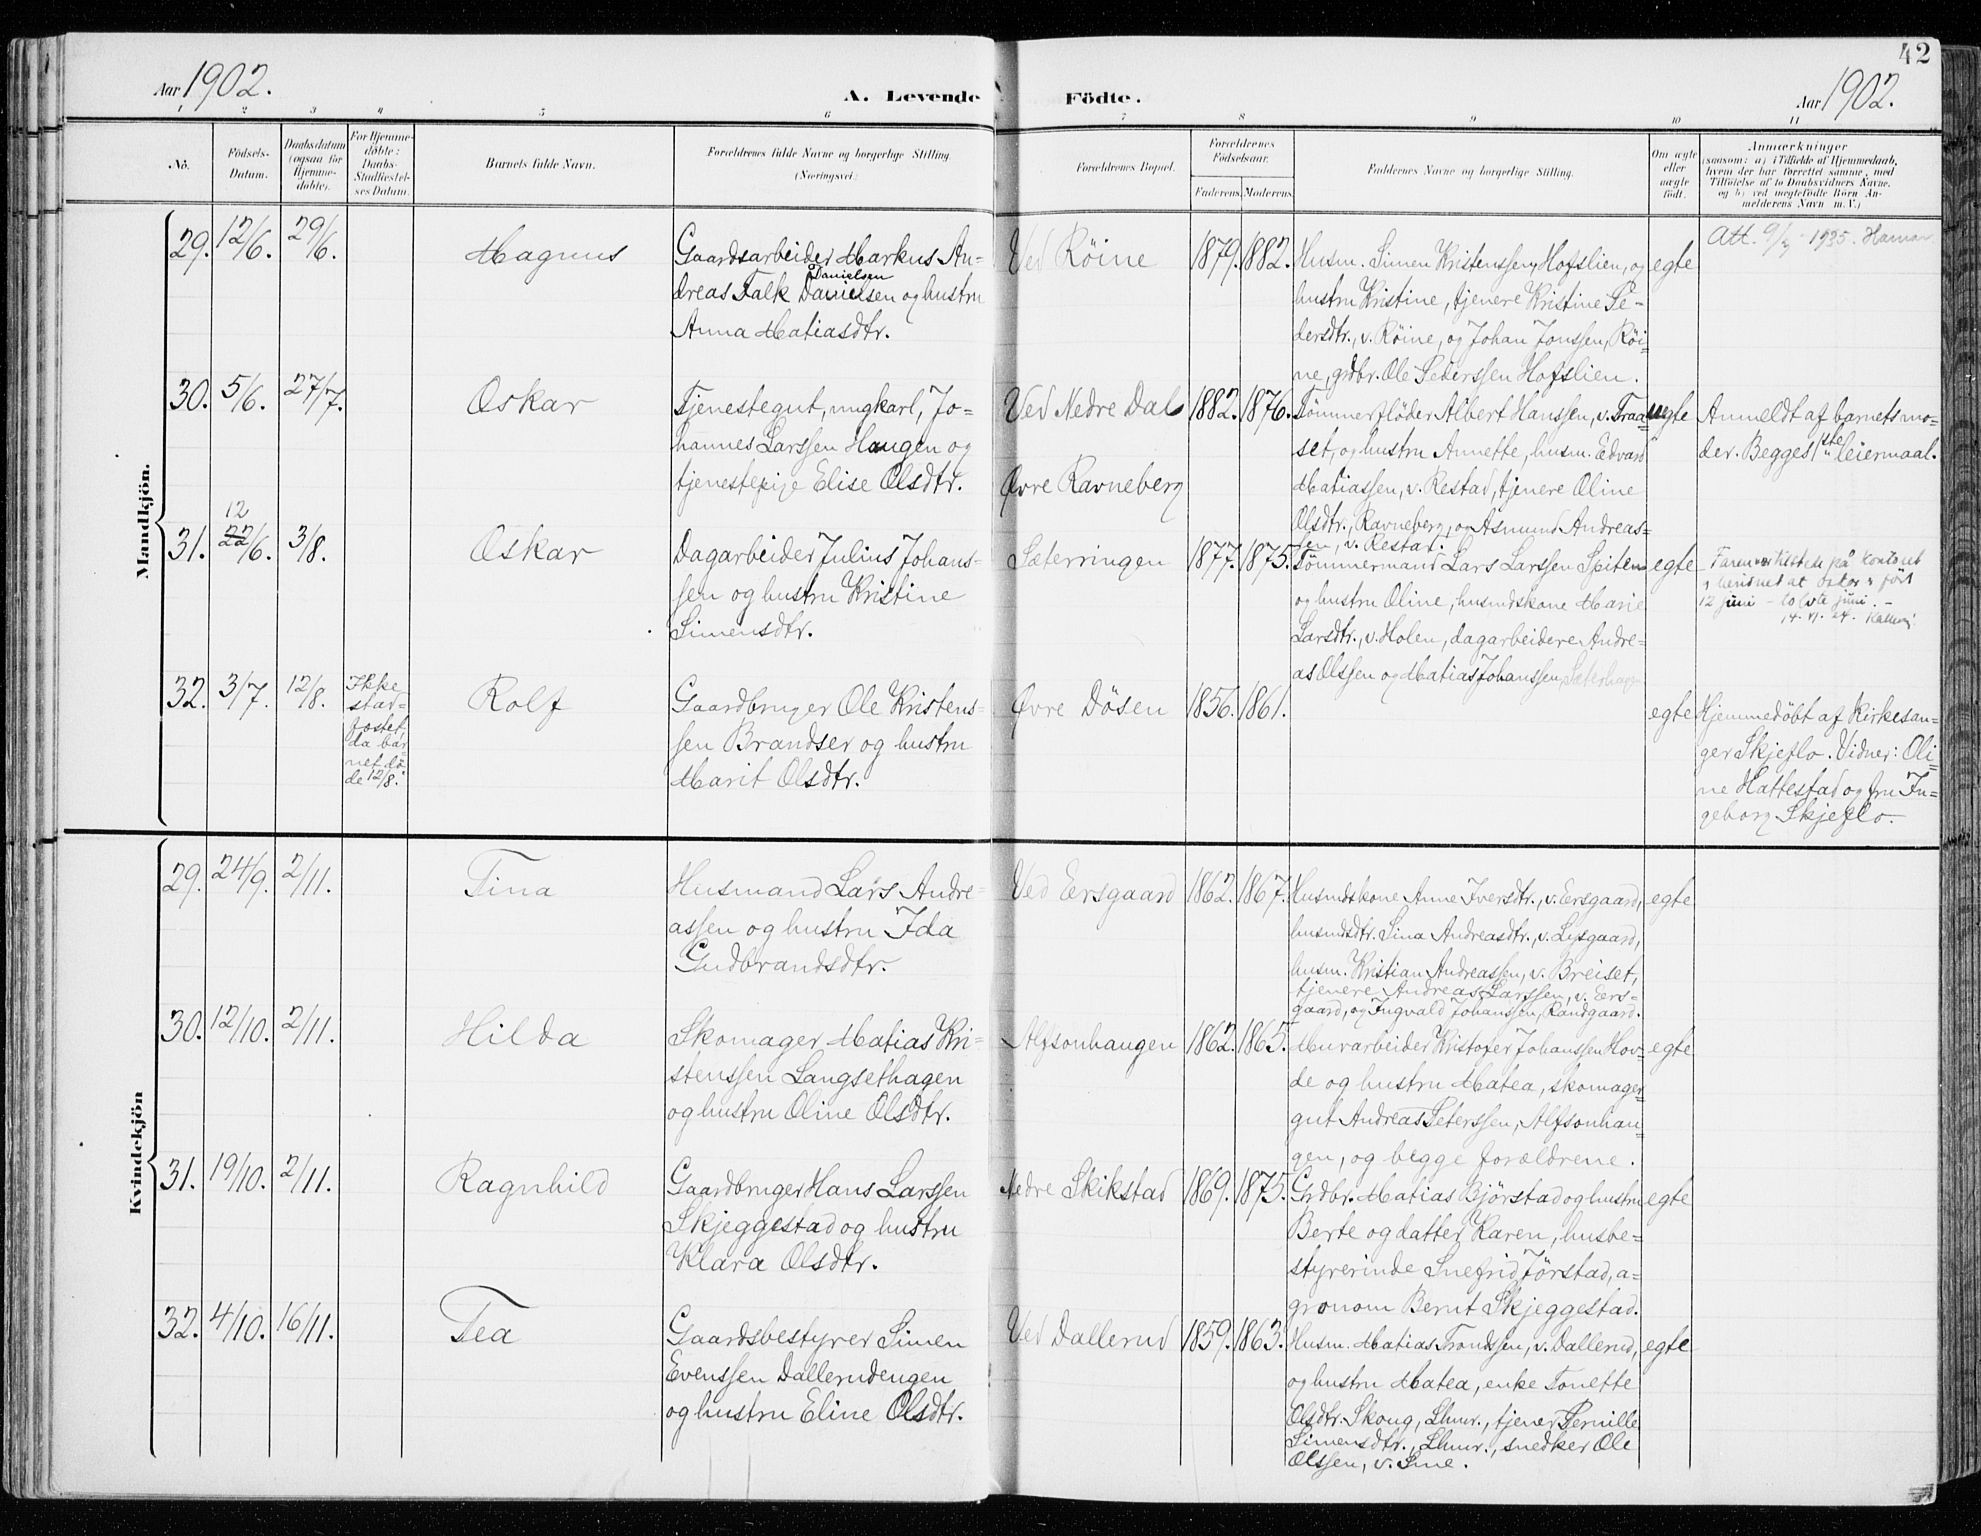 42
Aar 1902.
A. Levende Födte.
Aar 1902.
1 2 3 4 5 6 7 8 9 10 11
No.
Födsels-
Datum.
Daabsdatum
(ogsaa for
Hjemme-
döbte).
For Hjemme-
döbte:
Daabs-
Stadfæstel-
ses Datum.
Barnets fulde Navn.
Forældrenes fulde Navne og borgerlige Stilling
(Næringsvei)
Forældrenes Bopæl.
Forældrenes
Födselsaar.
Faderens. Moderens.
Faddernes Navne og borgerlige Stilling.
Om ægte
eller
uægte
født.
Anmærkninger
(saasom: a) i Tilfælde af Hjemmedaab,
hvem der har forrettet samme, med
Tilføielse af to Daabsvidners Navne,
og b) ved uegtefödte Börn An-
melderens Navn m. V.)
Mandkjön.
29. 12/6. 29/6.
Magnus
Gaardsarbeider Markus An-
Danielsen
dreas Falk Danielsen og hustru
Anna Matiasdtr.
Ved Röine
1879. 1882.
Husm. Simen Kristenssen, Hofslien, og
hustru Kristine, tjenere Kristine Pe-
dersdtr., v. Röine, og Johan Jonssen, Röi-
ne, grdbr. Ole Pederssen Hofslien.
egte
Att. 1935. Hamar.
30. 5/6. 27/7.
Oskar
Tjenestegut, ungkarl, Jo-
hannes Larssen Haugen og
tjenestepige Elise Olsdtr.
Ved Nedre Dal
Øvre Ravneberg
1882. 1876.
Tömmerflöder Albert Hanssen, v. Traa-
set, og hustru Annette, husm. Edvard
Matiassen, v. Restad, tjenere Oline
Olsdtr., Ravneberg, og Asmund Andreas-
sen, v. Restad.
uegte
Anmeldt af barnets mo-
der. Begges 1ste leiermaal.
12
31. 22/6. 3/8.
Oskar
Dagarbeider Julius Johans-
sen og hustru Kristine
Simensdtr.
Sæterringen
1877. 1875.
Tömmermand Lars Larssen Spiten
og hustru Oline, husmdskone Marie
Larsdtr., v. Holen, dagarbeidere Andre-
as Olssen og Matias Johanssen, Sæterhagen
egte
på kontoret
at Oskar født
12 juni - tolvte juni. -
32. 3/7. 12/8.
Ikke
stad-
fæstet,
da bar-
net dö-
de 12/8.
Rolf
Gaardbruger Ole Kristens-
sen Brandser og hustru
Marit Olsdtr.
Øvre Dösen
1856. 1861.
egte
Hjemmedöbt af Kirkesan-
ger Skjeflo. Vidner: Oli-
ne Hattestad og fru In-
geborg Skjeflo.
Kvindekjön
29. 24/9. 2/11.
Tina
Husmand Lars Andre-
assen og hustru Ida
Gudbrandsdtr.
Ved Ersgaard
1862. 1867.
Husmdskone Anne Iversdtr., v. Ersgaard,
husmdsdtr. Sina Andreasdtr., v. Lysgaard,
husm. Kristian Andreassen, v. Breiset,
tjenere Andreas Larssen, v. Ers-
gaard, og Ingvald Johanssen, Randgaard.
egte
30. 12/10. 2/11.
Hilda
Skomager Matias Kri-
stenssen Langsethagen
og hustru Oline Olsdtr.
Alfsonhaugen
1862. 1865.
Murarbeider Kristofer Johanssen Hov-
de og hustru Matea, skomager-
gut Andreas Peterssen, Alfsonhau-
gen, og begge forældrene.
egte
31. 19/10. 2/11.
Ragnhild
Gaardbruger Hans Larssen
Skjeggestad og hustru
Klara Olsdtr.
Nedre Skikstad
1869. 1875.
Grdbr. Matias Björstad og hustru
Berte og datter Karen, husbe-
styrerinde Snefrid Jörstad, a-
gronom Bernt Skjeggestad.
egte
32. 4/10. 16/11.
Tea
Gaardsbestyrer Simen
Evenssen Dallerudengen
og hustru Eline Olsdtr.
Ved Dallerud
1859. 1863.
Husm. Matias Trondssen, v. Dallerud,
og hustru Matea, enke Tonette
Olsdtr. Skoug, Lhmr., tjener Pernille
Simensdtr., Lhmr., snedker Ole
Olssen, v. Sme.
egte